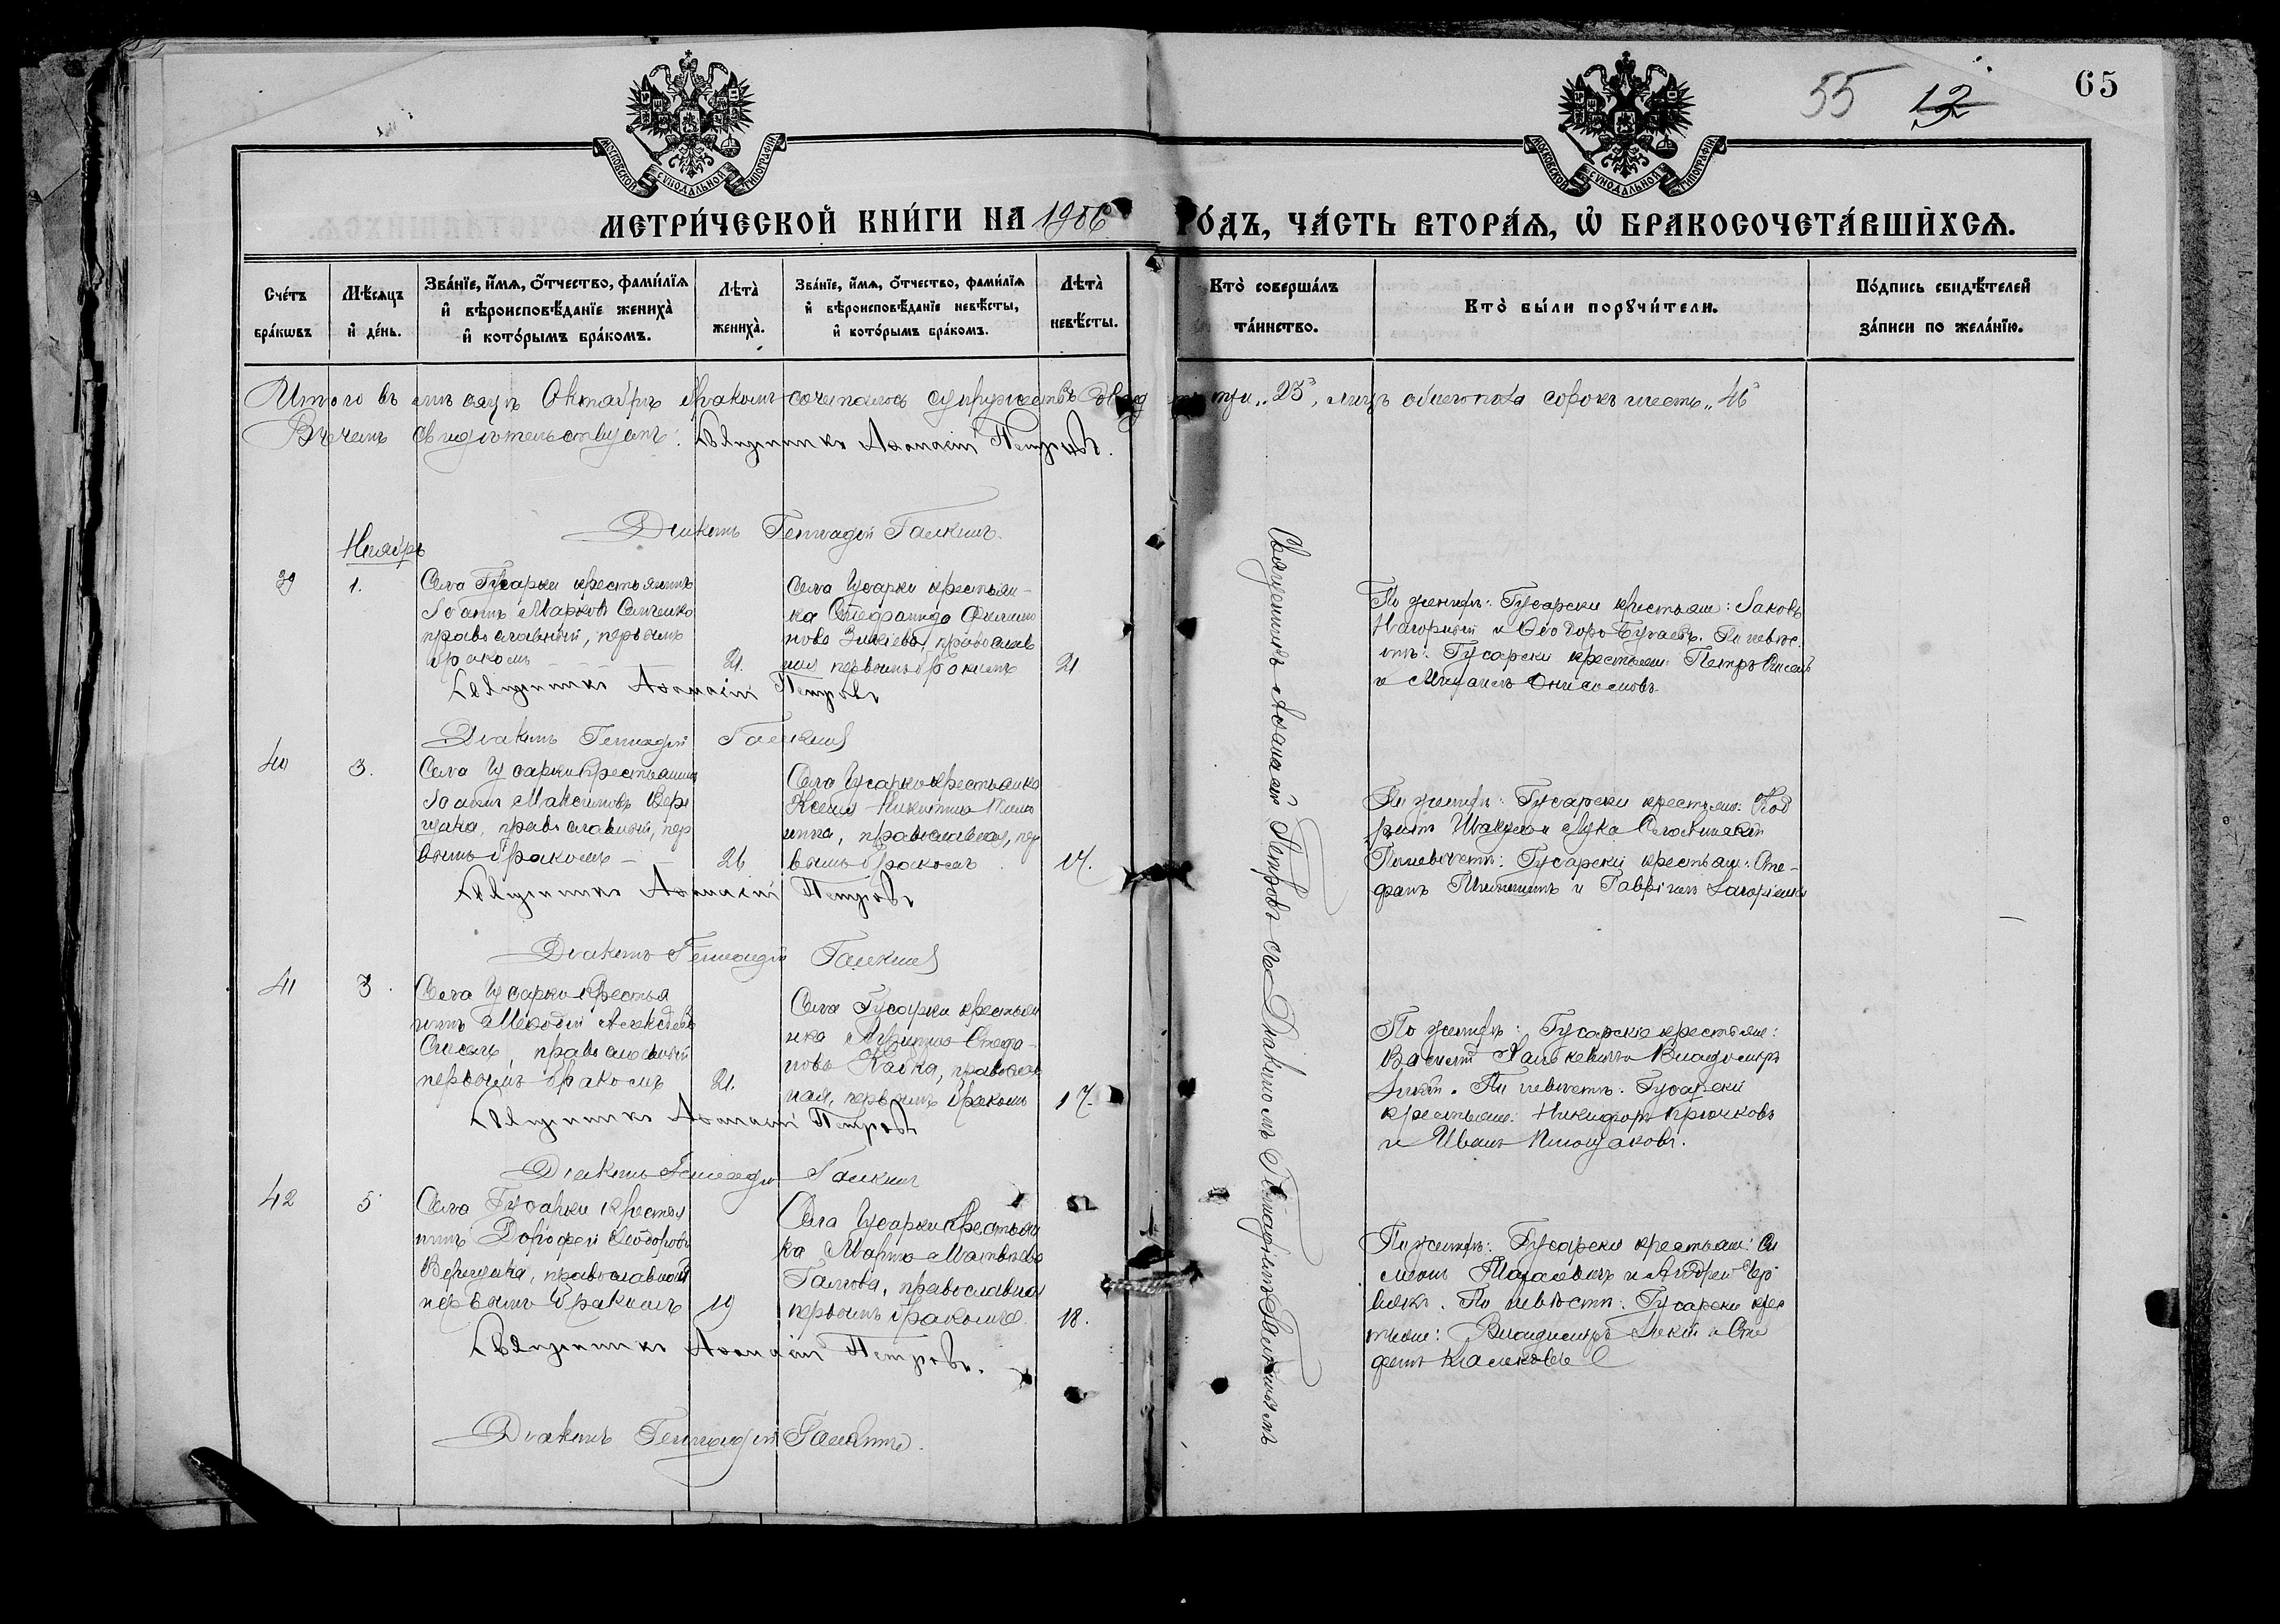 55 12 65
МОСКОВСКОЙ СѴНОДАЛЬНОЙ ТИПОГРАФІИ
МОСКОВСКОЙ СѴНОДАЛЬНОЙ ТИПОГРАФІИ
МЕТРИ́ЧЕСКОЙ КНИ́ГИ НА 1906 ГО́ДЪ, ЧА́СТЬ ВТОРА́Ѧ, Ѡ҆ БРАКОСОЧЕТА́ВШИХСѦ.
Сче́тъ бра́кѡвъ
Мѣ́сѧцъ и҆ де́нь.
Зва́нїе, и҆́мѧ, ѻ҆́тчество, фами́лїѧ и҆ вѣроисповѣ́данїе жениха̀ и҆ кото́рымъ бра́комъ.
Лѣта̀ жениха̀.
Зва́нїе, и҆́мѧ, ѻ҆́тчество, фами́лїѧ и҆ вѣроисповѣ́данїе невѣ́сты, и҆ кото́рымъ бра́комъ.
Лѣта̀ невѣ́сты.
Кто̀ соверша́лъ та́инство.
Кто̀ бы́ли порꙋчи́тели.
По́дпись свидѣ́телей за́писи по жела́нїю.
Итого въ мѣсяцѣ Октябрѣ бракомъ сочеталось супружествъ двад три „23", лицъ обоего пола сорокъ шесть „46"
Въ чемъ свидѣтельствуемъ: Священникъ Аѳанасій Петровъ.
Діаконъ Геннадій Галкинъ.
Ноябрь
39 1.
Села Гусарки крестьянинъ
Іоаннъ Марковъ
православный, первымъ
бракомъ 21.
Села Гусарки крестьян-
ка Стефанида Филип
пова православ
ная первымъ бракомъ 21
По женихѣ: Гусарски крестьяне: Іаковъ
Нагорный и Ѳеодоръ Бугаевъ. По невѣс
тѣ: Гусарски крестьяне Петръ
и Михаилъ Онисимовъ.
Священникъ Аѳанасій Петровъ
Діаконъ Геннадій Галкинъ
40 3.
Села Гусарки крестьянинъ
Іоаннъ Максимовъ Вер
щака, православный, пер
вымъ бракомъ 26
Села Гусарки крестьянка
Ксенія Никитина
православная, пер
вымъ бракомъ 17.
По женихѣ: Гусарски крестьяне: Код
ратъ и Лука
По невѣстѣ: Гусарски крестьян: Сте-
фанъ и Гавріилъ
Священникъ Аѳанасій Петровъ
Діаконъ Геннадій Галкинъ
41 3.
Села Гусарки крестья
нинъ Меѳодій Алексѣевъ
православный
первымъ бракомъ 21.
Села Гусарки крестьян
ка Стефа-
нова православ
ная, первымъ бракомъ 17.
По женихѣ: Гусарскіе крестьяне:
Василій и Владиміръ
По невѣстѣ: Гусарски
крестьяне: Никифоръ Крючковъ
и Иванъ
Священникъ Аѳанасій Петровъ
Діаконъ Геннадій Галкинъ
42 5
Села Гусарки крестья
нинъ Дорофей Ѳеодоровъ
Верещака, православный
первымъ бракомъ 19
Села Гусарки крестьян
ка Марѳа Матвѣева
православная
первымъ бракомъ 18.
По женихѣ: Гусарски крестьяне: Си
меонъ и Андрей Чер
вякъ. По невѣстѣ: Гусарски крес
тьяне: Владиміръ и Сте
фанъ
Священникъ Аѳанасій Петровъ.
Діаконъ Геннадій Галкинъ.
Священникъ Аѳанасій Петровъ съ Діакономъ Геннадіемъ Галкинымъ